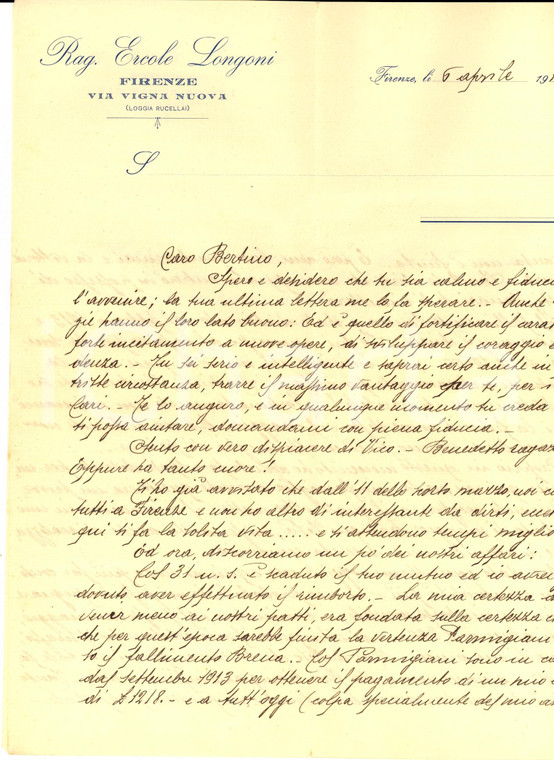 Rag. Ercole Longoni
FIRENZE
VIA VIGNA NUOVA
(LOGGIA RUCELLAI)
Firenze, li 6 aprile 191
S
Caro Bertino,
Spero e desidero che tu sia calmo e fiduci
l'avvenire; la tua ultima lettera me lo fa sperare. - Anche
gie hanno il loro lato buono: Ed è quello di fortificare il carat
forte incitamento a nuove opere, di sviluppare il coraggio e
denza. - Tu sei serio e intelligente e saprai certo anche in
triste circostanza, trarre il massimo vantaggio per te, per i
Cari. - Te lo auguro, e in qualunque momento tu creda
ti possa aiutare, domandami con piena fiducia. -
Sento con vero dispiacere di Vico. - Benedetto ragaz
Eppure ha tanto cuore!
Ti ho già avvisato che dall'11 dello scorso marzo, noi
tutti a Firenze e non ho altro di interessante da dirti,
qui si fa la solita vita ..... e si attendono tempi miglio
Ed ora, discorriamo un po' dei nostri affari:
Col 31 u. s. è scaduto il tuo mutuo ed io avrei
dovuto aver effettuato il rimborso. - La mia certezza
venir meno ai nostri patti, era fondata sulla certezza
che per quest'epoca sarebbe finita la vertenza Parmigiani
to il fallimento Brena. - Col Parmigiani sono in ca
dal settembre 1913 per ottenere il pagamento di un mio
di £ 1218. - e a tutt'oggi (colpa specialmente del mio a